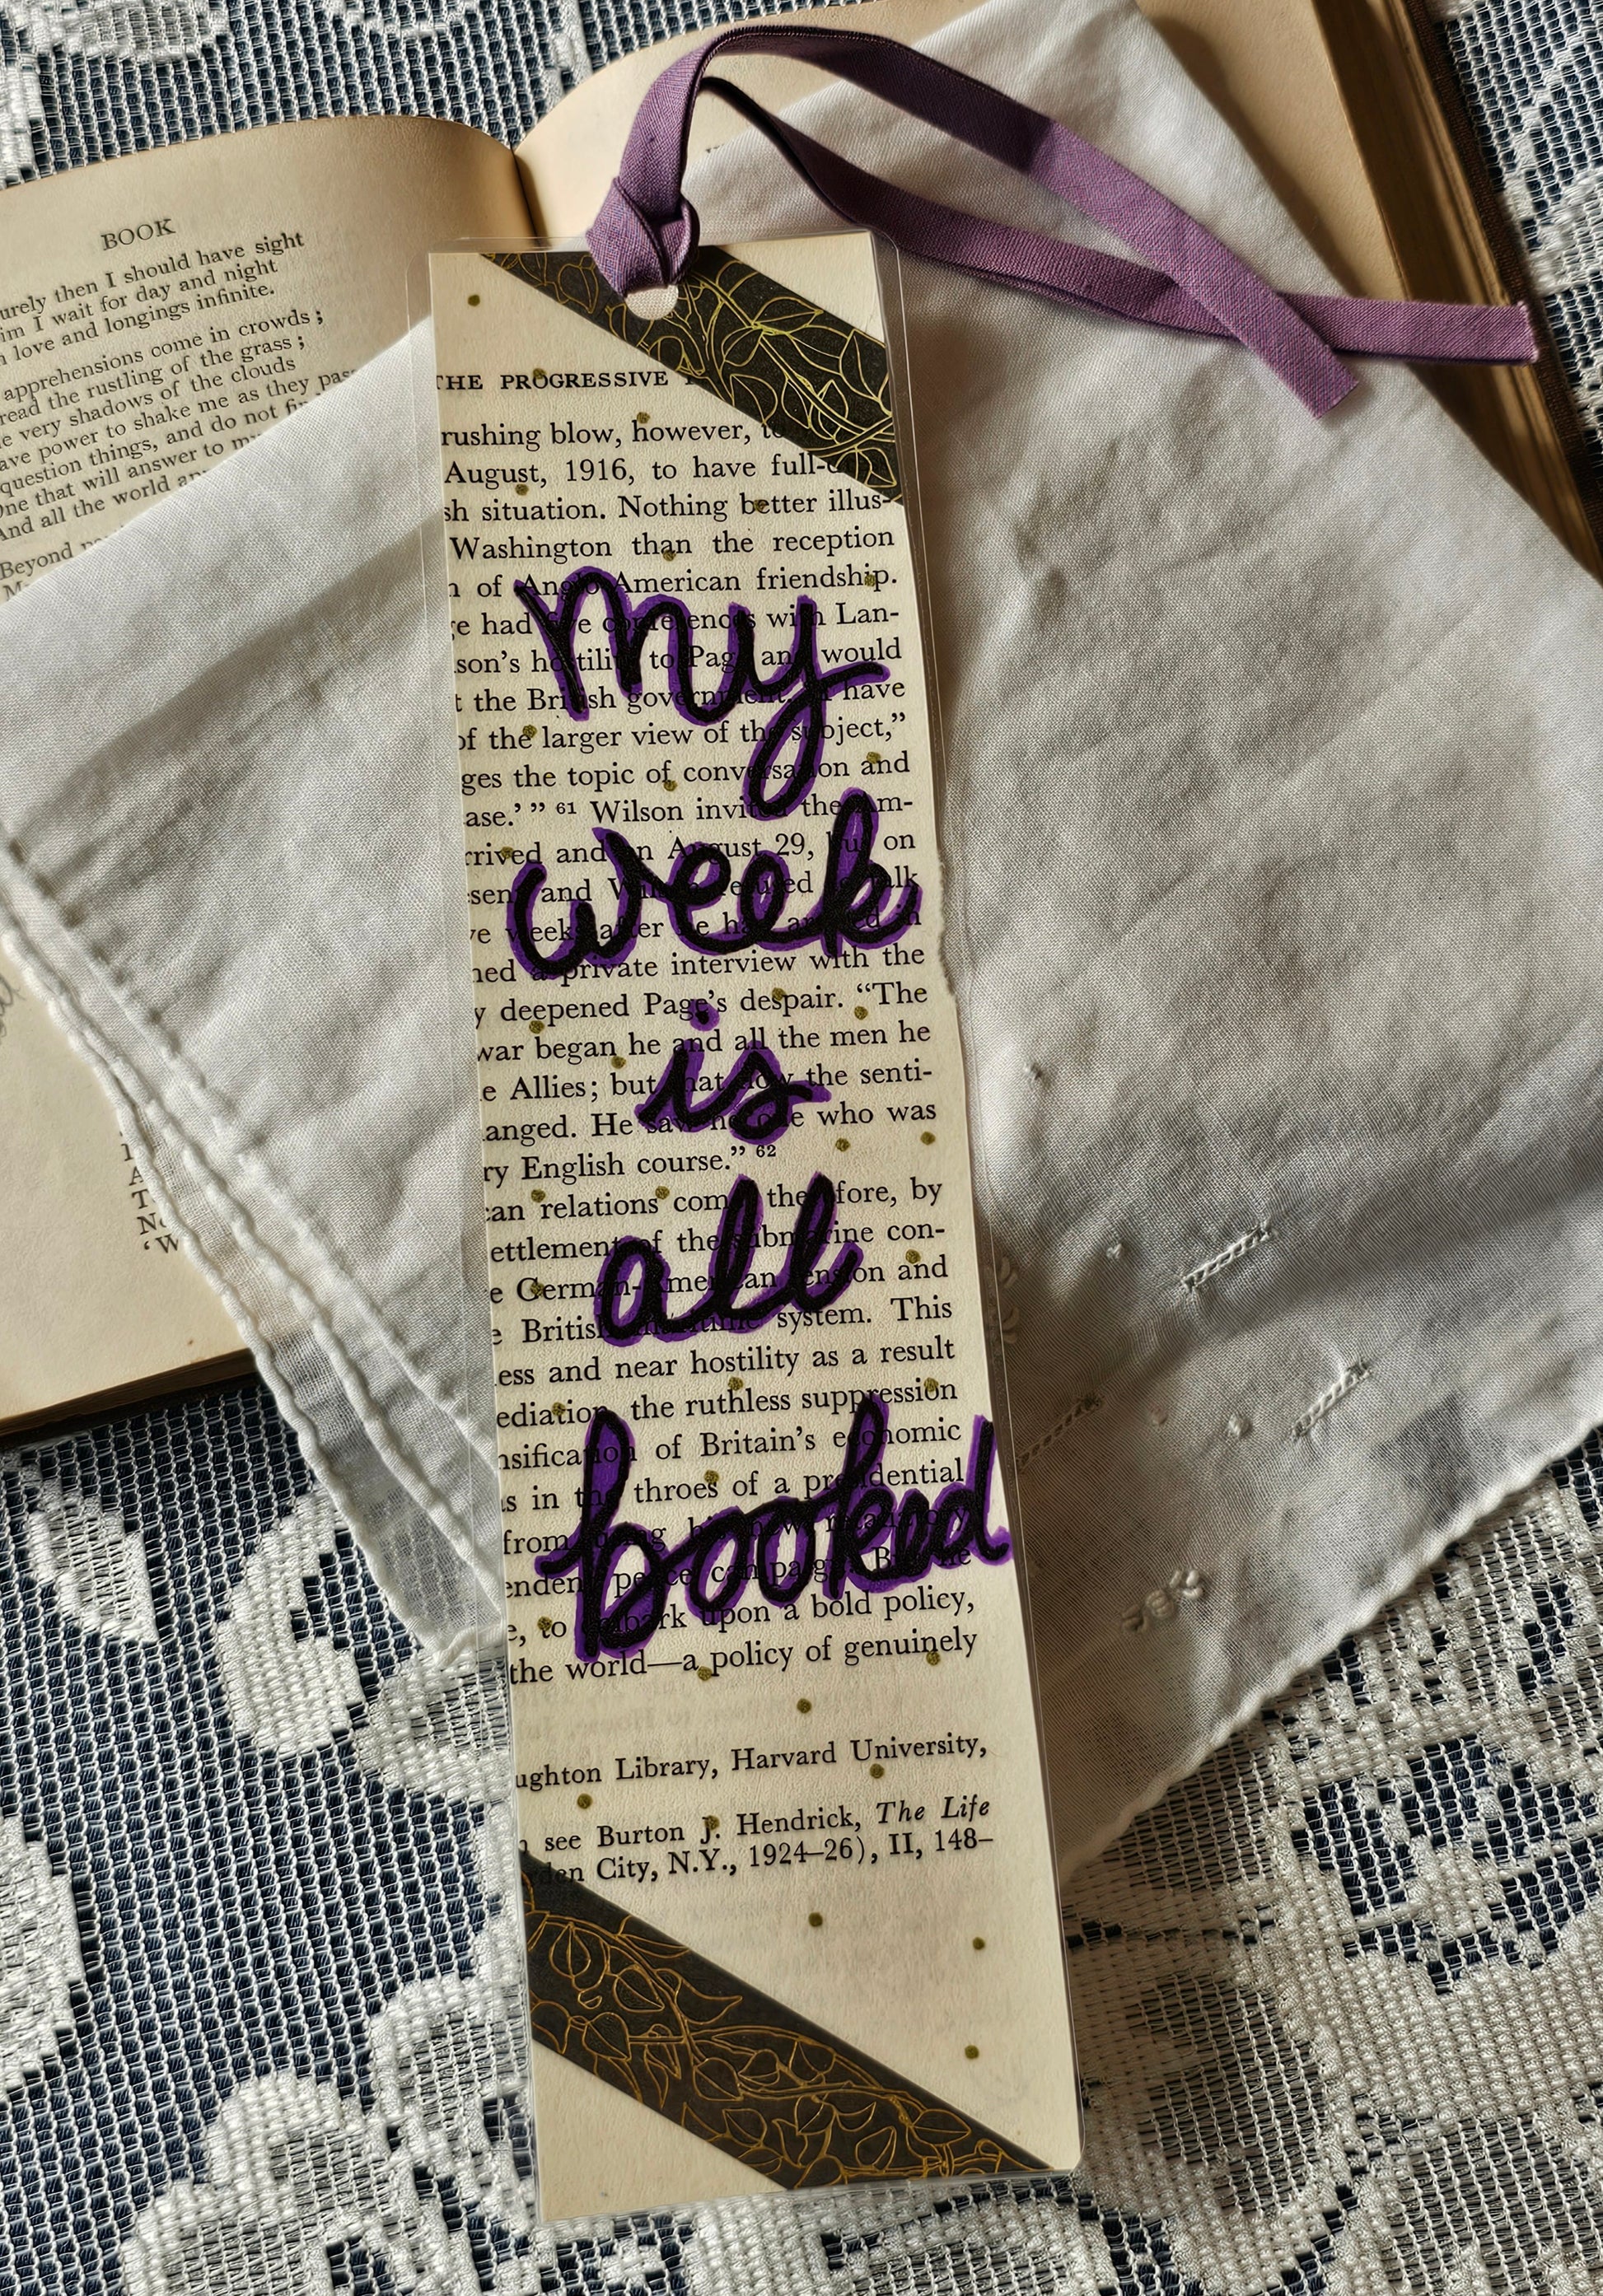 BOOK
urely then I should have sight
im I wait for day and night
love and longings infinite.
apprehensions come in crowds;
read the rustling of the grass;
e very shadows of the clouds
ave power to shake me as they pass
question things, and do not
one that will answer to
And all the world
Beyond
THE PROGRESSIVE
rushing blow, however,
August, 1916, to have full-
sh situation. Nothing better illus-
Washington than the reception
of Anglo-American friendship.
ge had five conferences with Lan-
son's hostility to Page and would
t the British government. have
of the larger view of the subject,”
ges the topic of conversation and
ase.’ ” 61 Wilson invited the Am-
rrived and on August 29, but on
sent and Wilson refused to talk
ve weeks after he had arrived in
ned a private interview with the
y deepened Page's despair. “The
war began he and all the men he
e Allies; but that now the senti-
anged. He saw no one who was
ry English course.” 62
can relations come, therefore, by
ettlement of the submarine con-
e German-American tension and
e British maritime system. This
ess and near hostility as a result
ediation, the ruthless suppression
nsification of Britain's economic
s in the throes of a presidential
from
endent peace campaign. But he
e, to embark upon a bold policy,
the world—a policy of genuinely
ughton Library, Harvard University,
see Burton J. Hendrick, The Life
rden City, N.Y., 1924–26), II, 148–
my
week
is
all
booked